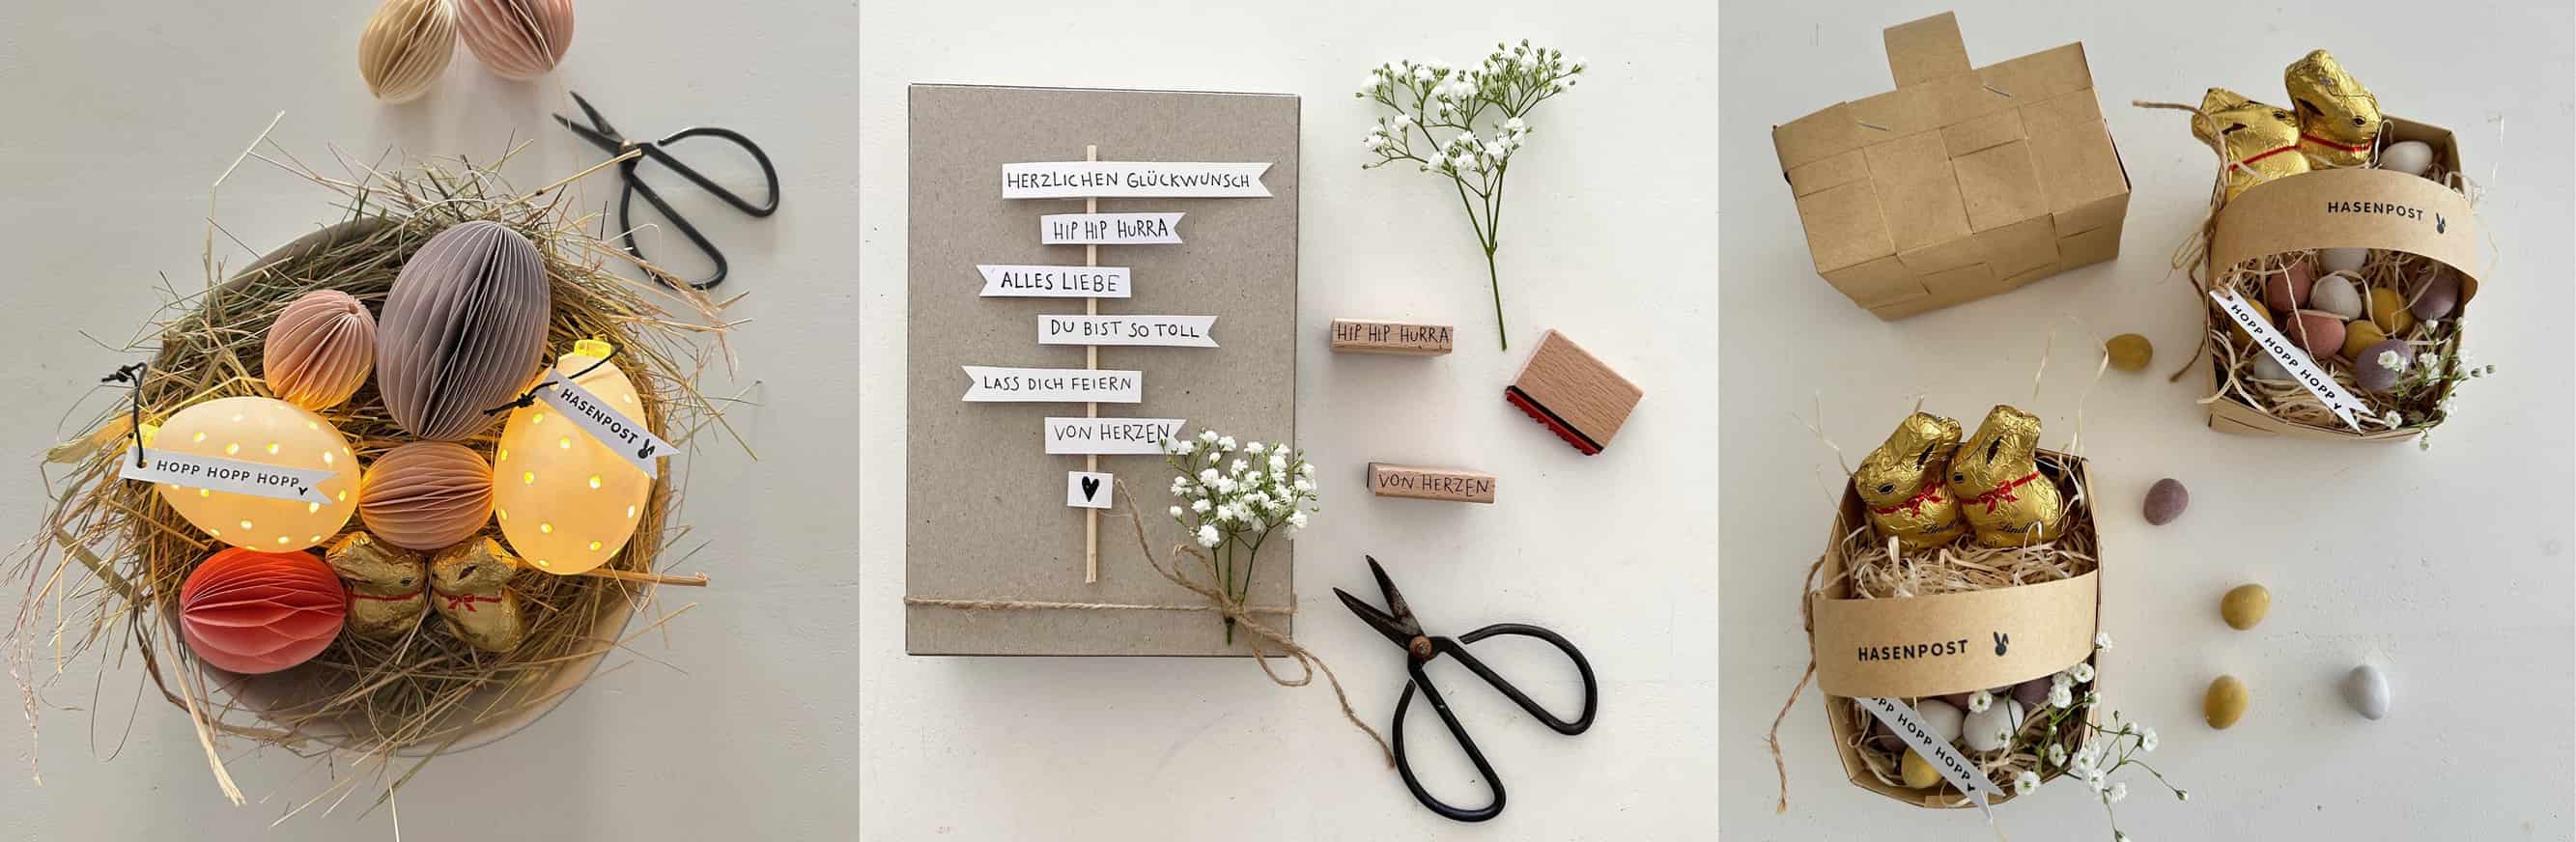 HASENPOST
HOPP HOPP HOPP
HERZLICHEN GLÜCKWUNSCH
HIP HIP HURRA
ALLES LIEBE
DU BIST SO TOLL
LASS DICH FEIERN
VON HERZEN
HIP HIP HURRA
VON HERZEN
HASENPOST
HOPP HOPP HOPP
Lindt
HASENPOST
HOPP HOPP